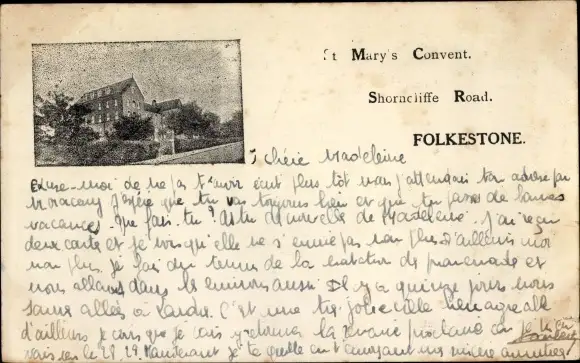 St Mary's Convent.
Shorncliffe Road.
FOLKESTONE.
chérie Madeleine
Excuse-moi de ne pas t'avoir écrit plus tôt mais j'attendais ton adresse
J'espère que tu vas toujours bien et que tu passes de bonnes
vacances. Que fais-tu? As-tu de nouvelle de Madeleine. J'ai reçu
deux cartes et je vois qu'elle ne s'ennuie pas non plus. D'ailleurs moi
non plus je fais du tennis de la natation de promenade et
nous allons dans les environs aussi. Il y a quinze jours nous
sommes allés à Londre. C'est une très jolie ville
d'ailleurs je crois que je vais y retourner la semaine prochaine
le 28, 29. Maintenant je te quitte en t'envoyant mes